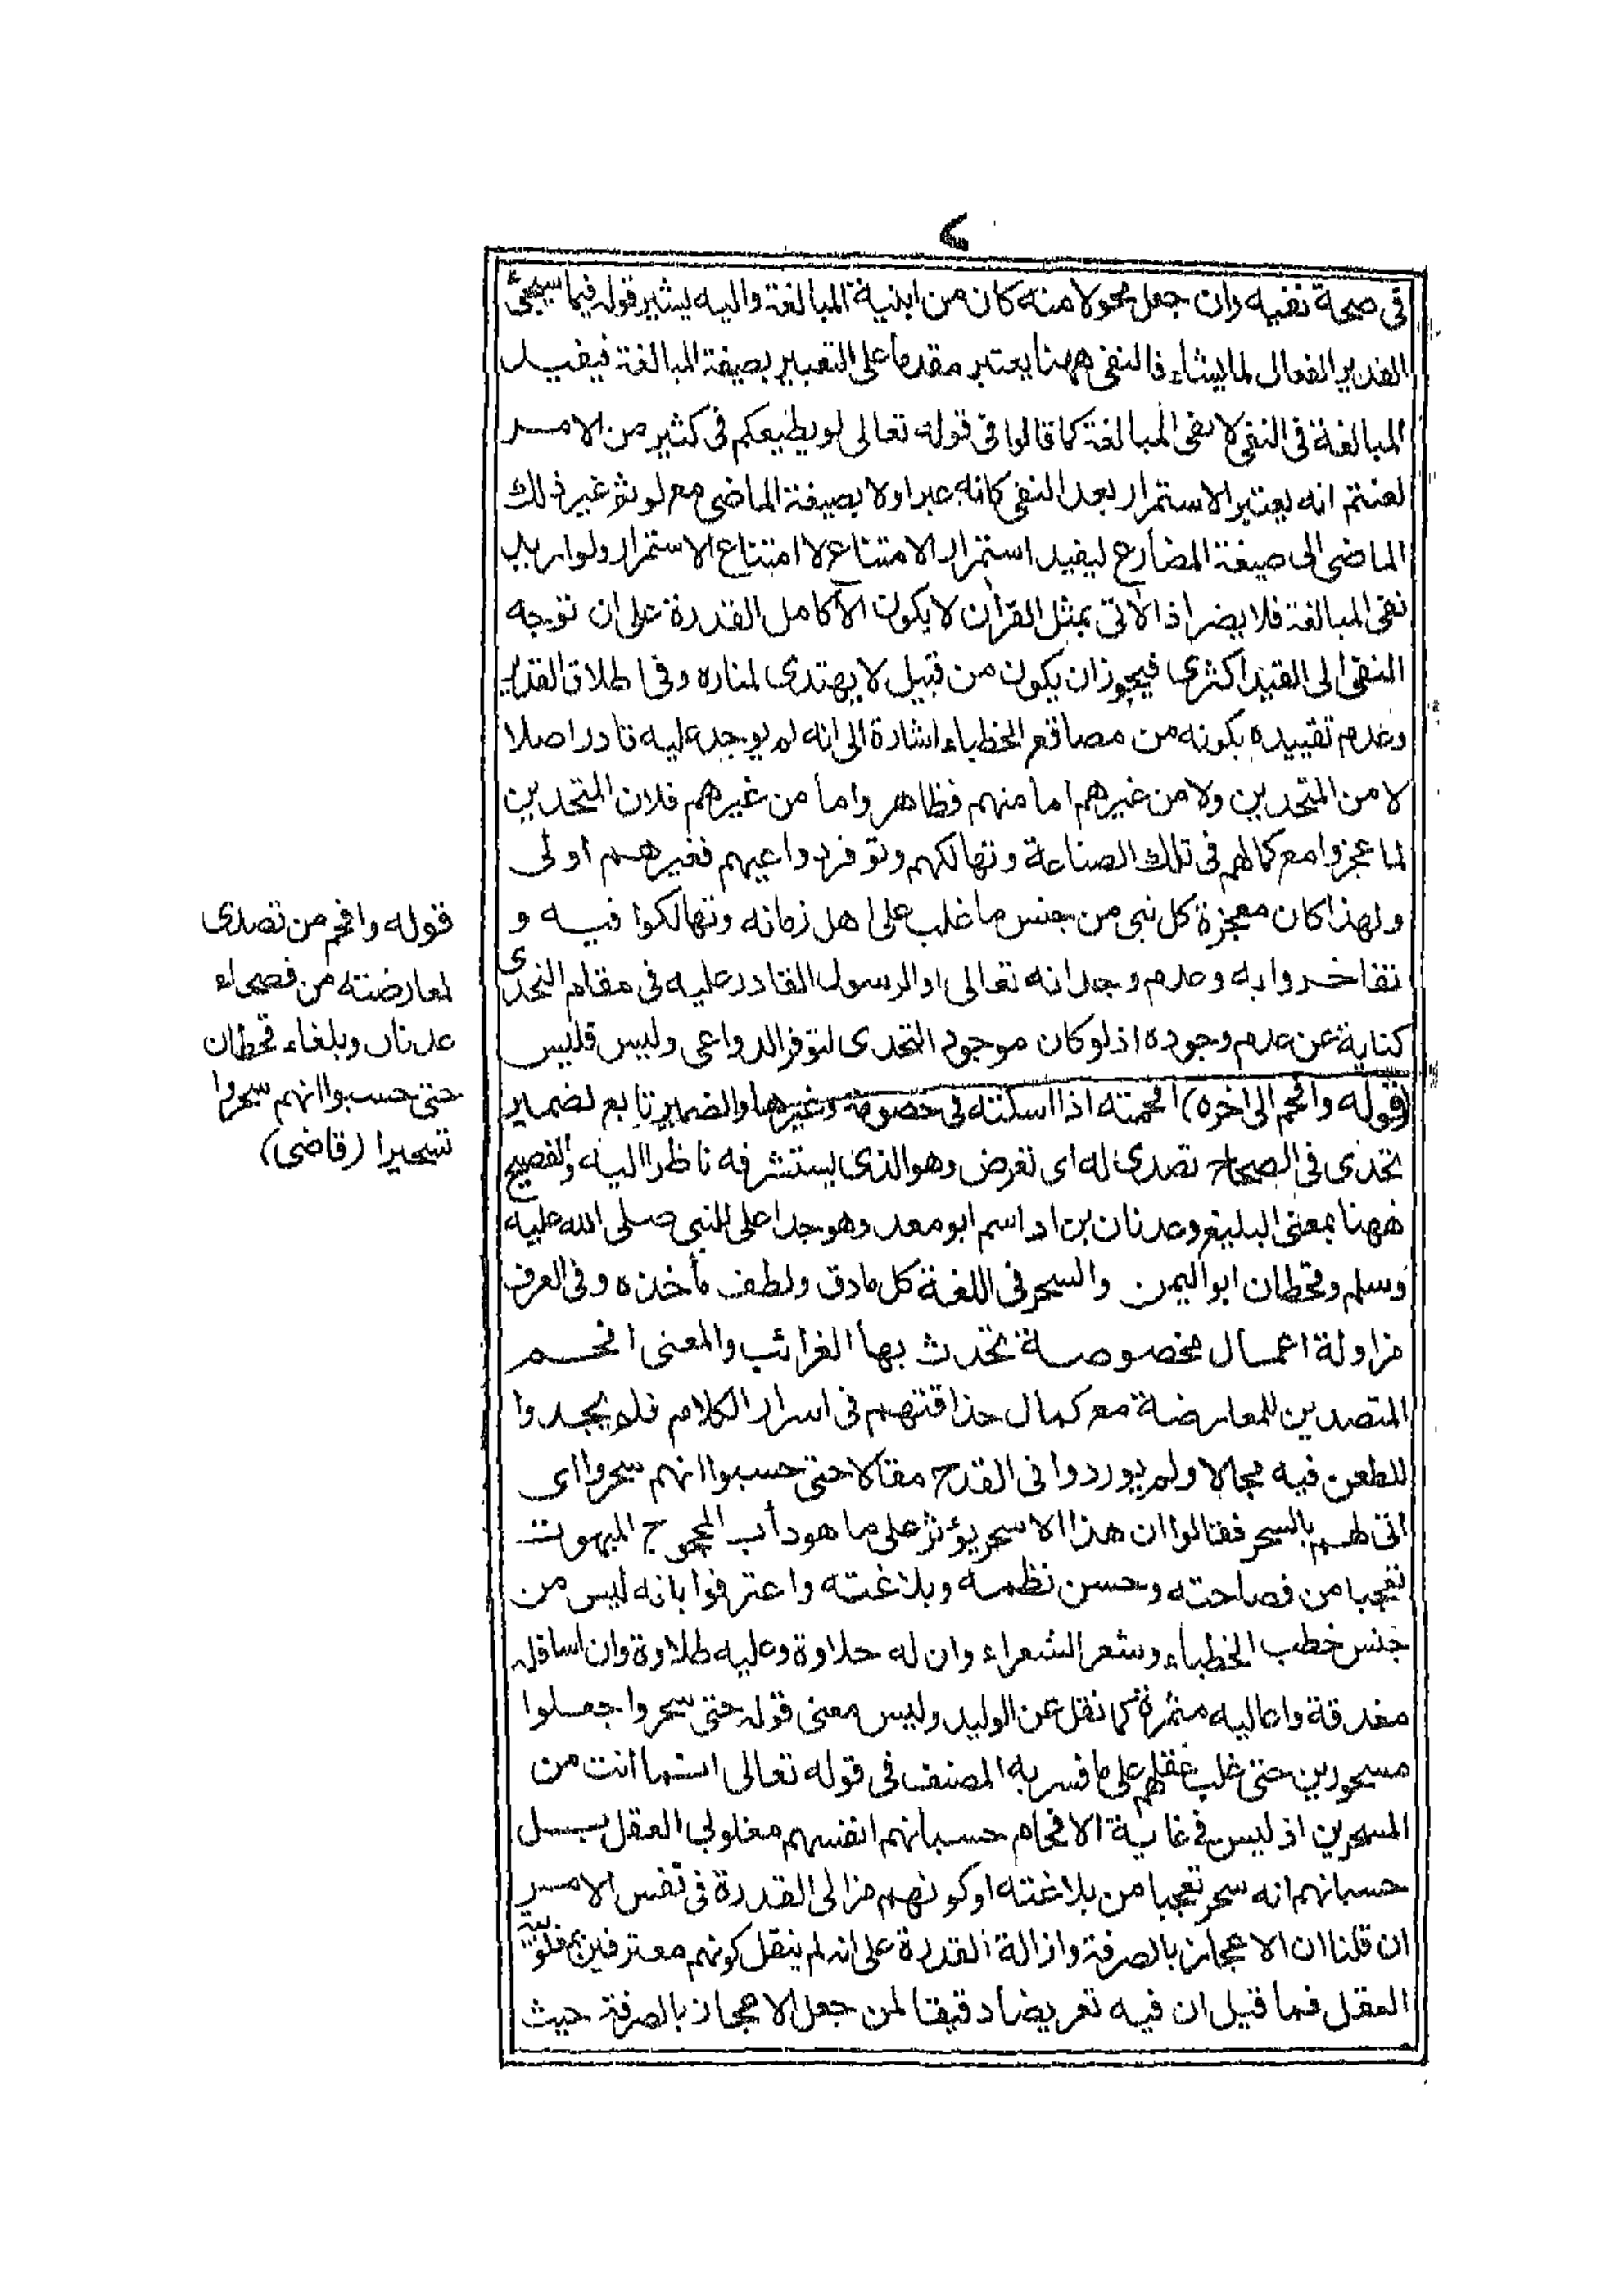 في صحة نفيه وان جعل محولا منه كان من ابنية المبالغة واليه يشير قوله فيما سيجئ
القدير الفعال لما يشاء فالنفى ههنا يعتبر مقدما على التعبير بصيغة المبالغة فيفيد
المبالغة فى النفى لا نفى المبالغة كما قالوا فى قوله تعالى لو يطيعكم فى كثير من الامر
لعنتم انه يعتبر الاستمرار بعد النفى كانه عبر اولا بصيغة الماضى مع لو ثم غير ذلك
الماضى الى صيغة المضارع ليفيد استمرار الامتناع لا امتناع الاستمرار ولو اريد
نفى المبالغة فلا يضر اذ الآتى بمثل القرآن لا يكون الا كامل القدرة على ان توجه
النفى الى القيد اكثرى فيجوز ان يكون من قبيل لا يهتدى لمناره وفى اطلاق القدير
وعدم تقييده بكونه من مصاقع الخطباء اشارة الى انه لم يوجد عليه قادر اصلا
لا من المتحدين ولا من غيرهم اما منهم فظاهر واما من غيرهم فلان المتحدين
لما عجزوا مع كمالهم فى تلك الصناعة وتهالكهم وتوفر دواعيهم فغيرهم اولى
ولهذا كان معجزة كل نبى من جنس ما غلب على اهل زمانه وتهالكوا فيه و
تفاخروا به وعدم وجدانه تعالى او الرسول القادر عليه فى مقام التحدى
كناية عن عدم وجوده اذ لو كان موجود التحدى لتوفر الدواعى وليس فليس
(قوله وافحم الى اخره) افحمته اذا اسكتته فى خصومة وغيرها والضمير تابع لضمير
تحدى فى الصحاح تصدى له اى تعرض وهو الذى يستشرفه ناظرا اليه والفصيح
ههنا بمعنى البليغ وعدنان بن اد اسم ابو معد وهو جد اعلى للنبى صلى الله عليه
وسلم وقحطان ابو اليمن والسحر فى اللغة كل مادق ولطف مأخذه وفى العرف
مزاولة اعمال مخصوصة تحدث بها الغرائب والمعنى افحم
المتصدين للمعارضة مع كمال حذاقتهم فى اسرار الكلام فلم يجدوا
للطعن فيه مجالا ولم يوردوا فى القدح مقالا حتى حسبوا انهم سحروا اى
اتى لهم بالسحر فقالوا ان هذا الا سحر يؤثر على ما هو دأب المحجوج المبهوت
تعجبا من فصاحته وحسن نظمه وبلاغته واعترفوا بانه ليس من
جنس خطب الخطباء وشعر الشعراء وان له حلاوة وعليه طلاوة وان اسافله
مغدقة واعاليه مثمرة كما نقل عن الوليد وليس معنى قوله حتى سحروا جعلوا
مسحورين حتى غلب عقلهم على ما فسر به المصنف فى قوله تعالى انما انت من
المسحرين اذ ليس فى غاية الافحام حسبانهم انفسهم مغلوبى العقل بل
حسبانهم انه سحر تعجبا من بلاغته او كونهم مزالى القدرة فى نفس الامر
ان قلنا ان الاعجاز بالصرفة وازالة القدرة على انه لم ينقل كونهم معترفين بمغلوبية
العقل فما قيل ان فيه تعريضا دقيقا لمن جعل الاعجاز بالصرفة حيث
قوله وافحم من تصدى
لمعارضته من فصحاء
عدنان وبلغاء قحطان
حتى حسبوا انهم سحروا
تسحيرا (قاضى)